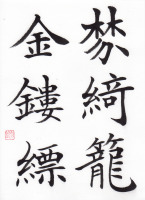 棼綺籠
金鏤縹